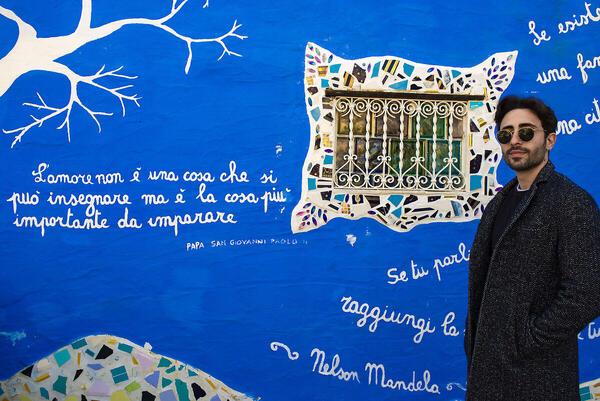 L'amore non è una cosa che si
può insegnare ma è la cosa più
importante da imparare
PAPA SAN GIOVANNI PAOLO II
Se esiste
una
Se tu
raggiungi
Nelson Mandela